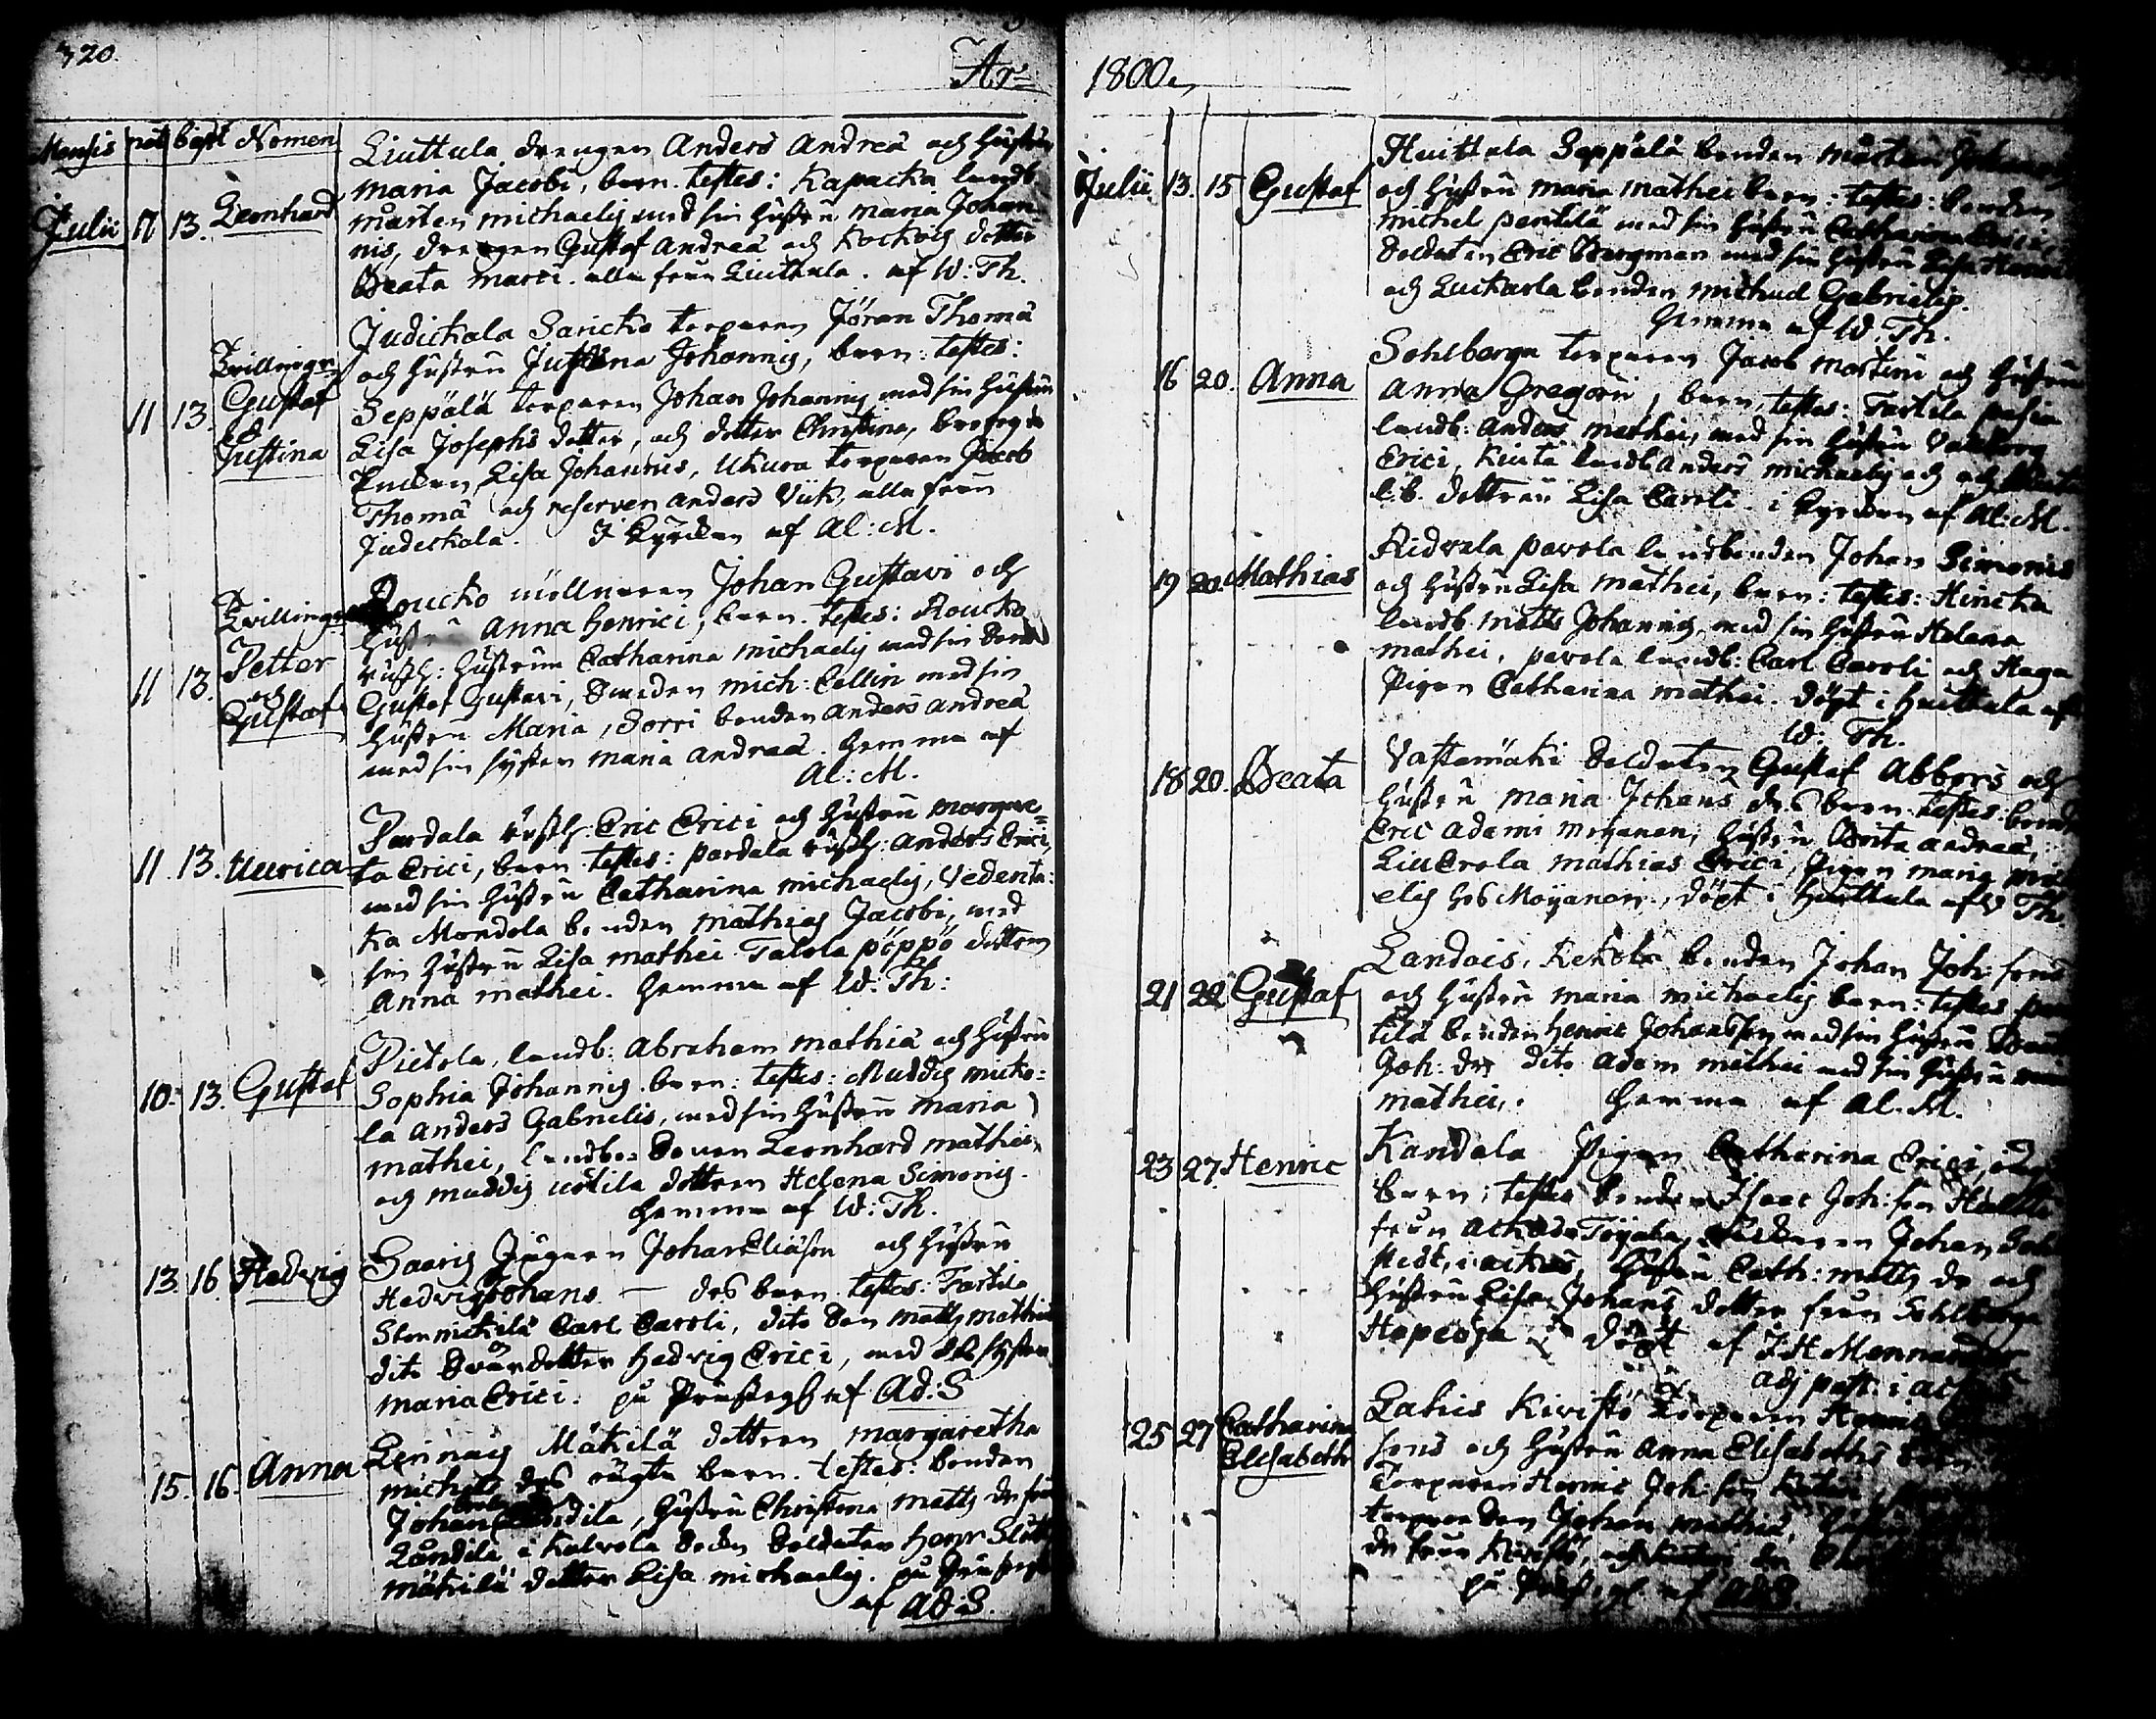 320.
År
Mensis nat bapt Nomen
Julii 11 13. Leonhard
Liuttula drengen Anders Andreä och hustru
Maria Jacobi, barn. testes: Kapacka landb.
Mårten Michaelis med sin hustru Maria Johan
nis, drengen Gustaf Andreä och Kockois dotter
Beata Marci. alla från Liuttula. af W: Th.
11 13. Tvillingar Gustaf & Justina
Judickala Saricko torparen Jöran Thomä
och hustru Justina Johannis, barn: testes:
Seppälä torparen Johan Johannis med sin hustru
Lisa Josephs dotter, och dotter Christina,
Enckan Lisa Johannis, Ukura torparen Jacob
Thomä och reserven Anders Viik, alla från
Judickala. I Kyrckan af Al: M.
11 13. Tvillingar Petter och Gustaf
Roucko möllnaren Johan Gustavi och
hustru Anna Henrici, barn. testes: Roucko
rusth: hustrun Catharina Michaelis med son
Gustaf Gustavi, Smeden Mich: Collin med sin
hustru Maria, Sorri bonden Anders Andreä
med sin syster Maria Andreä. hemma af
Al: M.
11. 13. Ulrica
Pardala rusth: Eric Erici och hustru Margare=
ta Erici, barn. testes: pardala rusth: Anders Erici,
med sin hustru Catharina Michaelis, Vedenta:
ka Mondola bonden Mathias Jacobi, med
sin hustru Lisa Mathei Talola pöppö dottren
Anna Mathei. hemma af W: Th:
10. 13. Gustaf
Pietola, landb: Abraham Mathiä och hustru
Sophia Johannis. barn: testes: Muddis micko:
la Anders Gabrielis, med sin hustru Maria
Mathei, landbo Sonen Leonhard Mathei,
och muddis uotila dottren Helena Simonis.
hemma af W: Th.
13. 16 Hedvig
Saaris Jägaren Johan Eliäson och hustru
Hedvig Johans — drs barn. testes: Tartila
Stennickilä Carl Caroli, dito Son Matts Mathiä
dito dotter Hedvig Erici, med syster
Maria Erici. på Prästegl af Ad: S
15. 16. Anna
Lennäis Mäkilä dottren Margaretha
Michels drs oägta barn. testes: bonden
Johan dila, hustru Christina Matts dr från
Låndila, i Kalvola Socken Soldaten Henr
Mäkilä dotter Lisa Michaelis. på Prästegl
af Ad: S.
1800.
Julii 13. 15 Gustaf
Huittula Seppälä bonden Mårten Johannis
och hustru Maria Mathei barn: testes: bonden
Michel pentilä med sin hustru Catharina Erici,
Soldaten Eric Bergman med sin hustru Lisa
och Luckarla bonden Michael Gabrielis.
hemma af W. Th.
16 20. Anna
Sohlberga torparen Jacob Martini och hustru
Anna Gregorii, barn, testes: Tartila pasia
landb: Anders Mathei, med sin hustru Valborg
Erici, Kiuta landb Anders Michaelis och
l:b. dottren Lisa Caroli. i Kyrckan af Al: M.
19 20. Mathias
Ridvala pavola landbonden Johan Simonis
och hustru Lisa Mathei, barn: testes: Hincka
landb. Matts Johannis, med sin hustru Helena
Mathei, pavola landb: Carl Caroli och Haga
Pigan Catharina Mathei. döpt i Huittula af
W: Th.
18 20. Beata
Vastamäki Soldaten Gustaf Abbors och
hustru Maria Johans drs barn. testes: bonden
Eric Adami Moÿanen, hustru Brita Andreä,
Mathias Erici, Pigan Maria Mich
elis hos Moÿanen, döpt i Huittula af W Th.
21 22 Gustaf
Landois, Kekola bonden Johan Joh: sons
och hustru Maria Michaelis barn: testes pen
tilä bonden Henric Johansson med sin hustru
Joh: dr dito Adam Mathei med sin hustru
Mathei. hemma af Al. M.
23 27. Henric
Kandala Pigan Catharina Erici, oägta
barn, testes bonden Isaac Joh: son
från Toÿala, Johan
stedt, i hustru Cath: Matts dr och
hustru Lisa Johans dotter från Sohlberga
döpt af J H Mennander
adj past. i
25 27 Catharina Elisabeth
Lahis Kivistö torparen Henric
sons och hustru Anna Elisabeths barn.
Torparen Henric Joh: son
torpare Son Johan Mathiä,
dr från Kivistö,
på Prästegl af Ad: S.